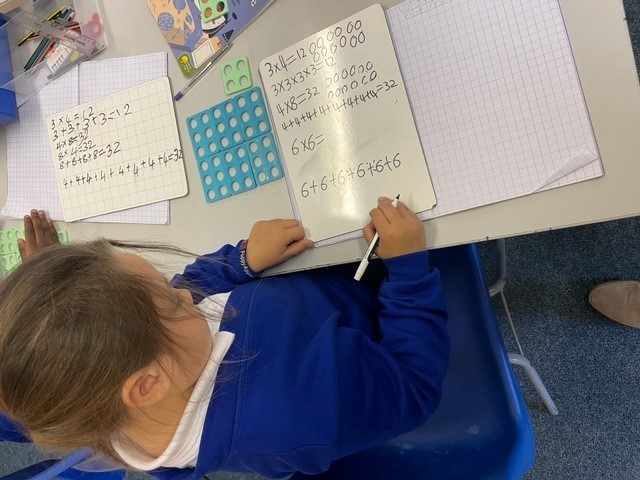 3 x 4 = 12
3 + 3 + 3 + 3 = 12
4 x 8 = 32
8 x 4 = 32
8 + 8 + 8 + 8 = 32
4 + 4 + 4 + 4 + 4 + 4 + 4 + 4 = 32
3 x 4 = 12
3 x 3 x 3 x 3 = 12
4 x 8 = 32
4 + 4 + 4 + 4 + 4 + 4 + 4 + 4 = 32
6 x 6 =
6 + 6 + 6 + 6 + 6 + 6